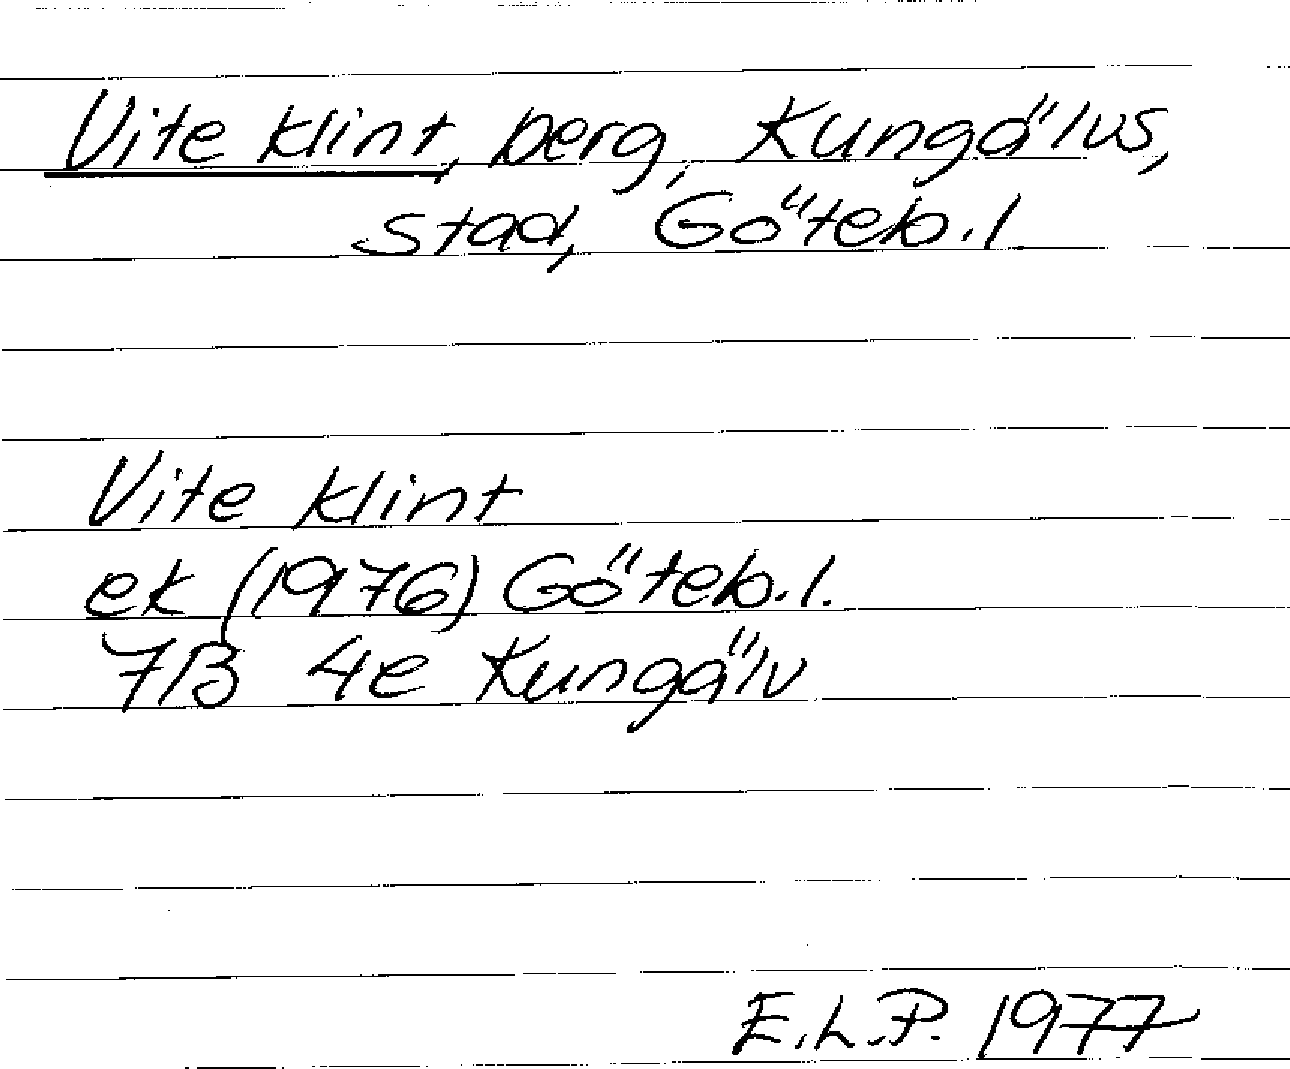 Vite klint, berg, Kungälvs,
stad, Göteb.l
Vite klint
ek (1976) Göteb.l.
7B 4e Kungälv
E.L.P. 1977